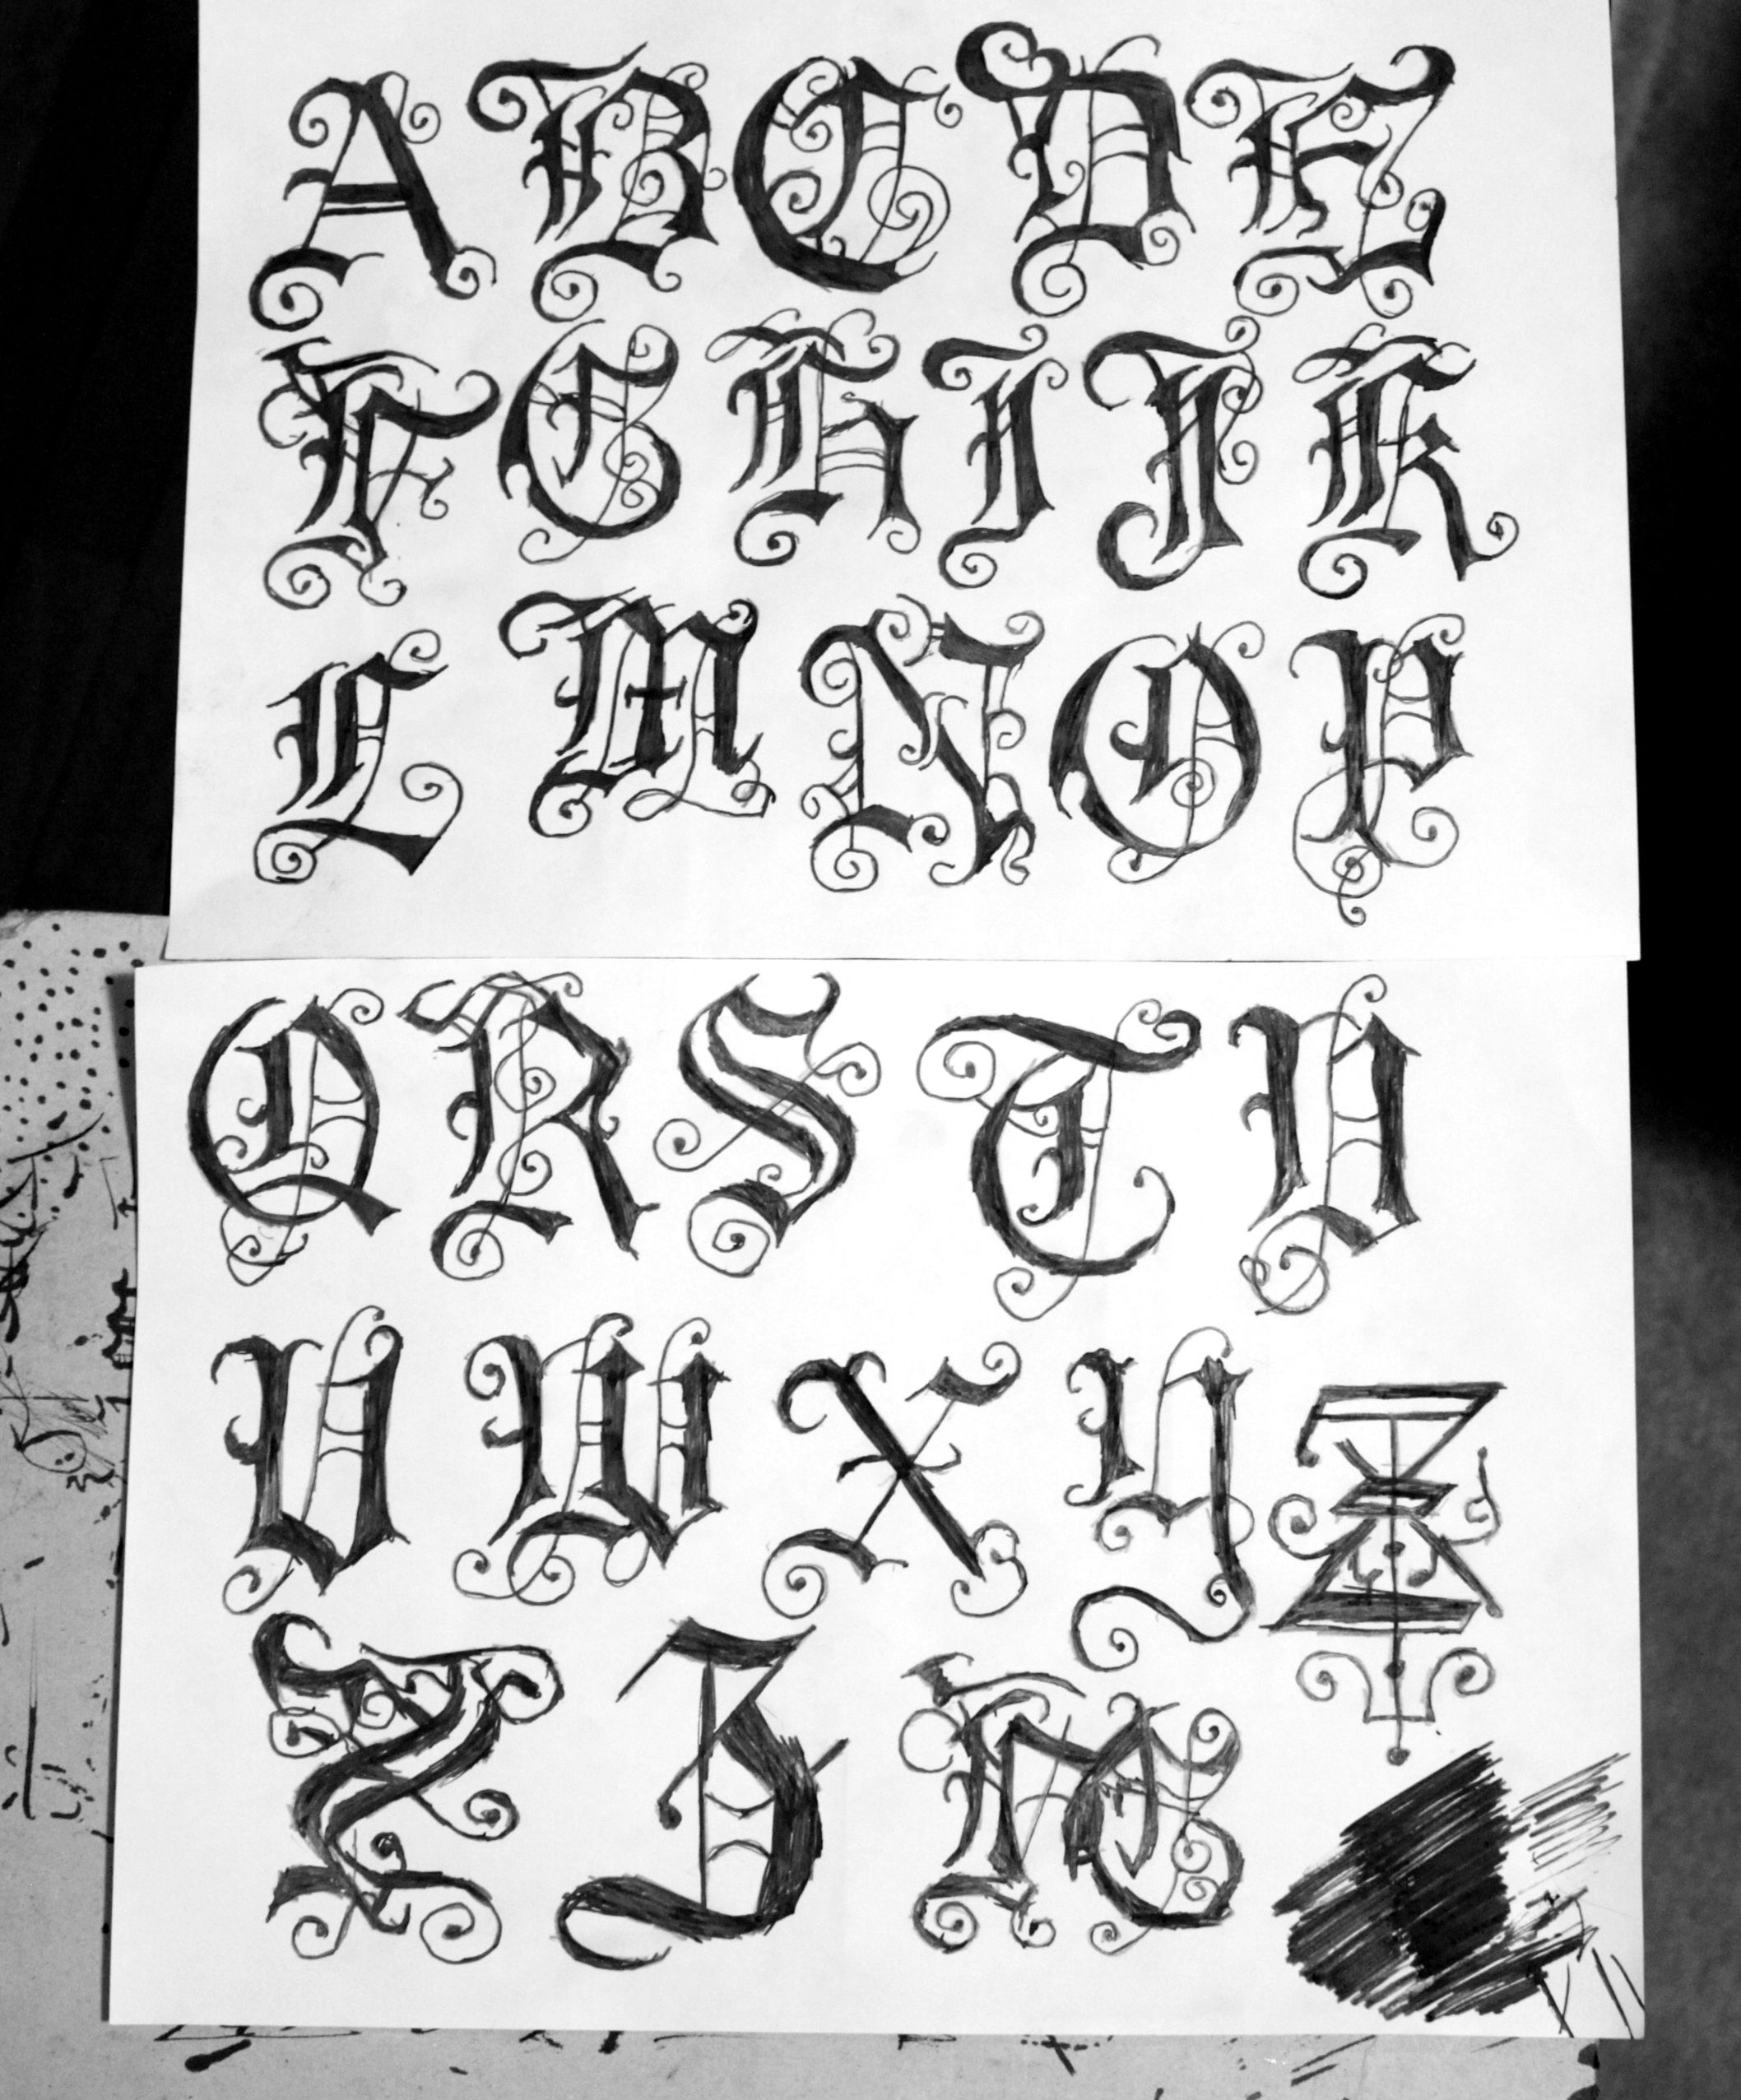 A B C D E
F G H I J K
L M N O P
Q R S T U
V W X Y Z
Z Z M G